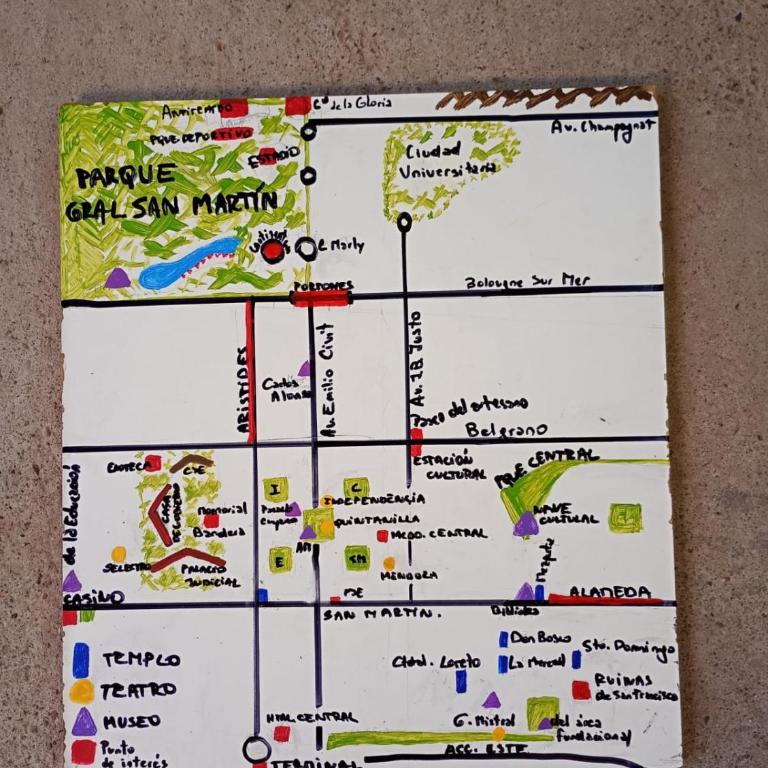 Cº de la Gloria
PQUE. DEPORTIVO
ESTADIO
Av. Champagnat
Ciudad
Universitaria
PARQUE
GRAL SAN MARTÍN
C Marly
PORTONES
Bologne Sur Mer
ARISTIDES
Av Emilio Civit
Av. JB Justo
Carlos
Alonso
Paseo del artesano
Belgrano
ESTACIÓN
CULTURAL
PQUE CENTRAL
ENOTECA
CASA
DE GOBIERNO
Memorial
Bandera
PALACIO
JUDICIAL
de la Educación
CASINO
I
C
INDEPENDENCIA
QUINTANILLA
MCDO. CENTRAL
E
SM
MENDOZA
NAVE
CULTURAL
ALAMEDA
SAN MARTÍN.
TEMPLO
TEATRO
MUSEO
Punto
de interés
Don Bosco
Sto. Domingo
Ctdral. Loreto
La Merced
RUINAS
de San Francisco
G. Mistral
del área
fundacional
HTAL CENTRAL
ACC. ESTE
TERMINAL